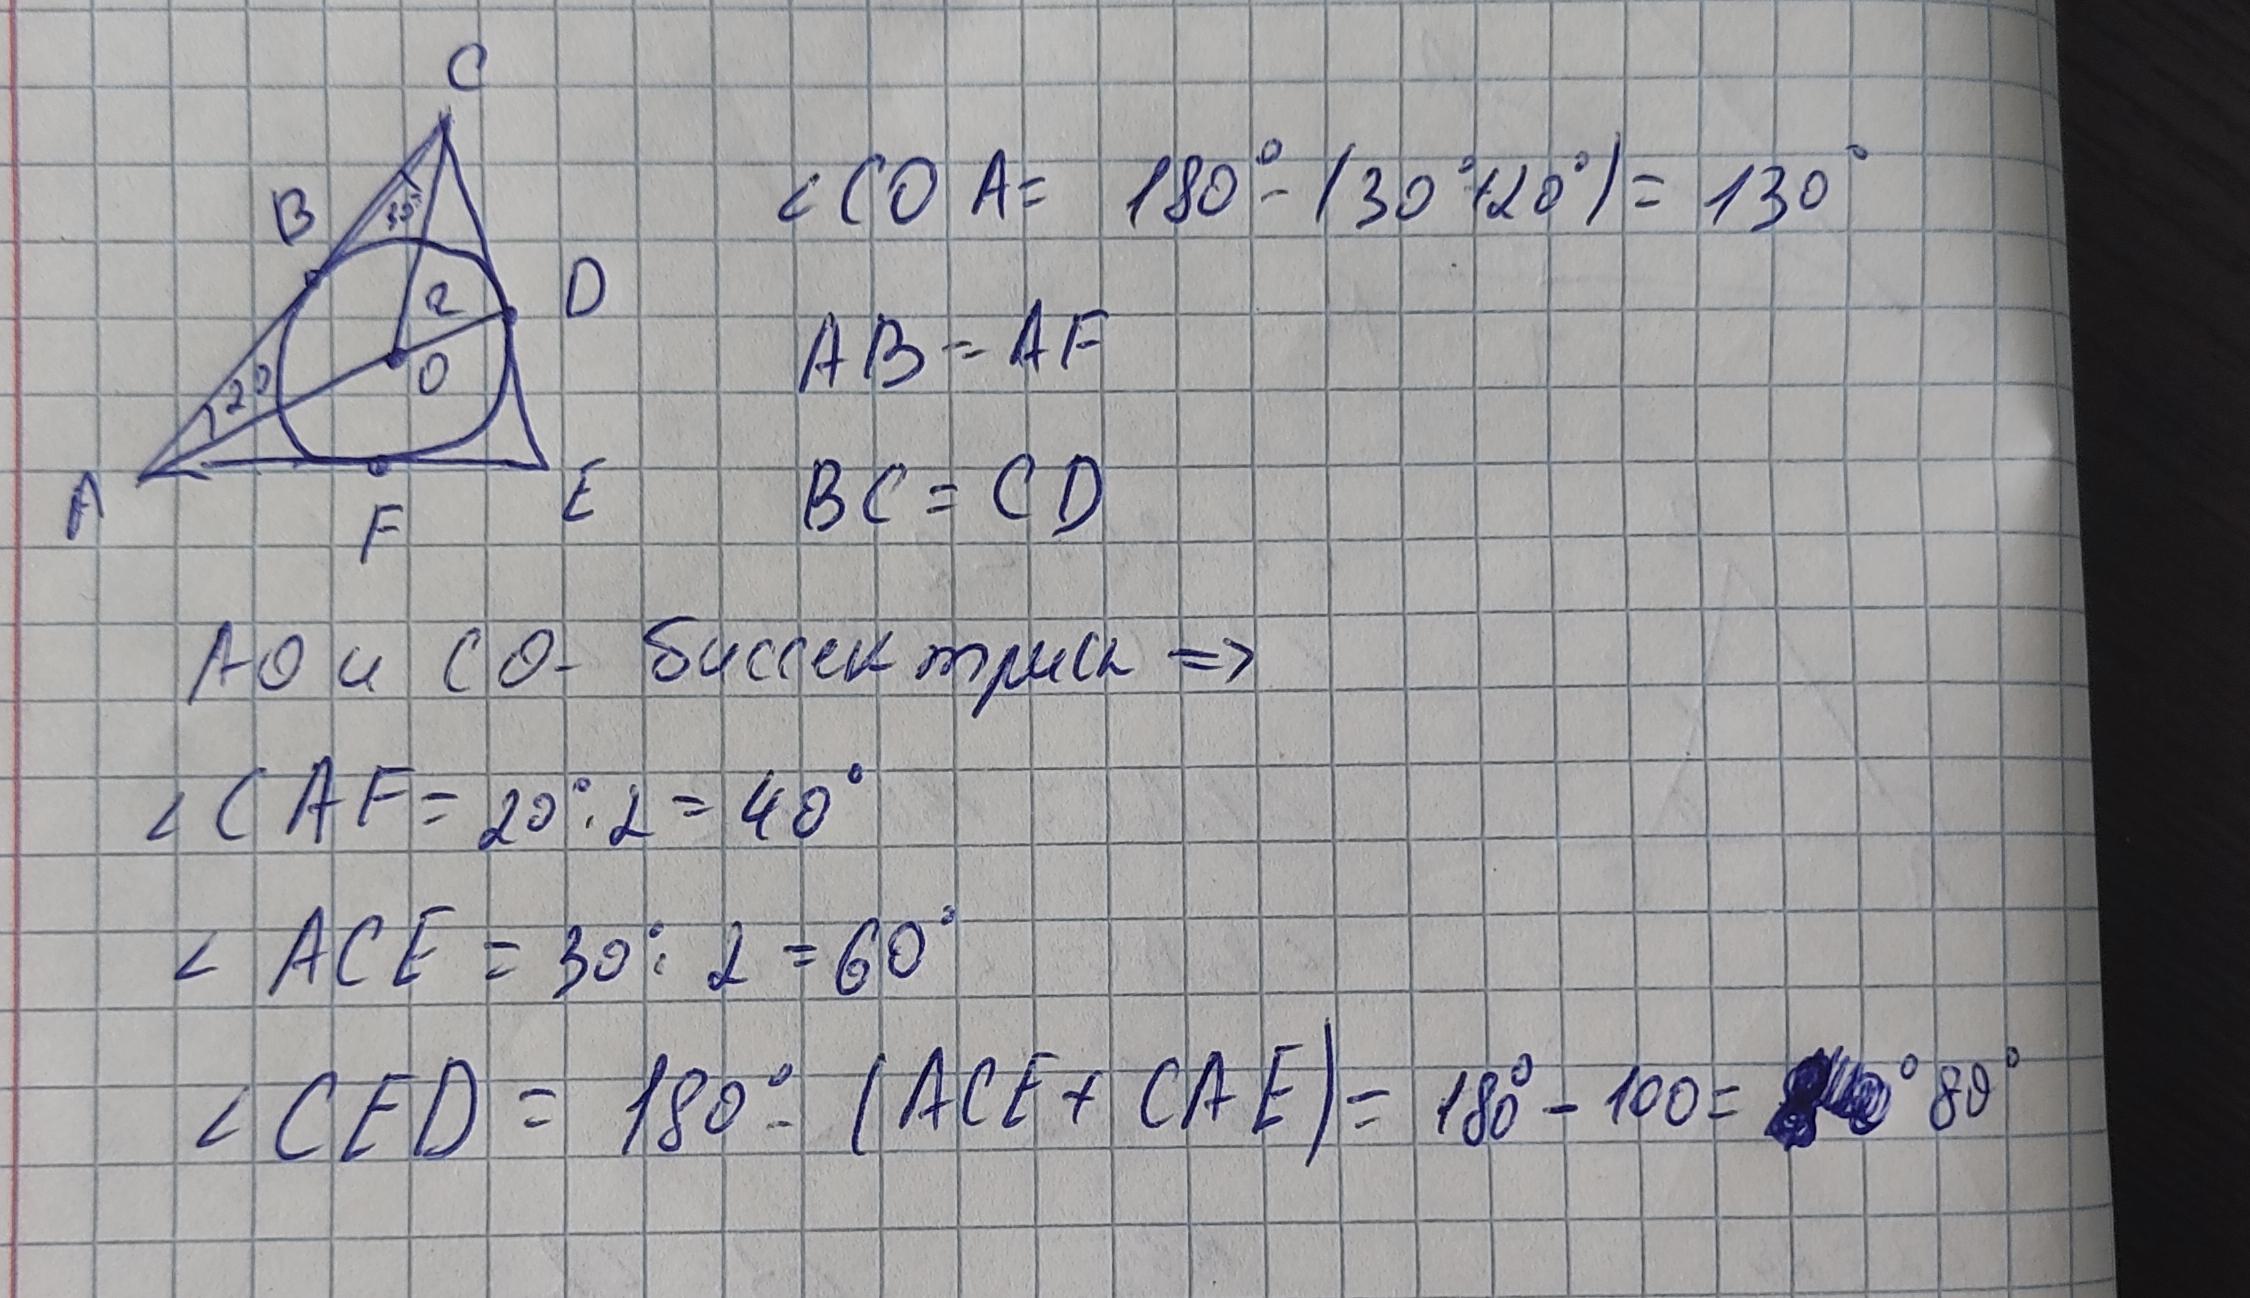 C
B
30°
D
2
O
20
A
F
E
< COA = 180° - (30°+20°) = 130°
AB = AF
BC = CD
AO и CO - биссектрисы =>
< CAF = 20° : 2 = 40°
< ACE = 30° : 2 = 60°
< CED = 180° - (ACE + CAE) = 180° - 100 = ° 80°